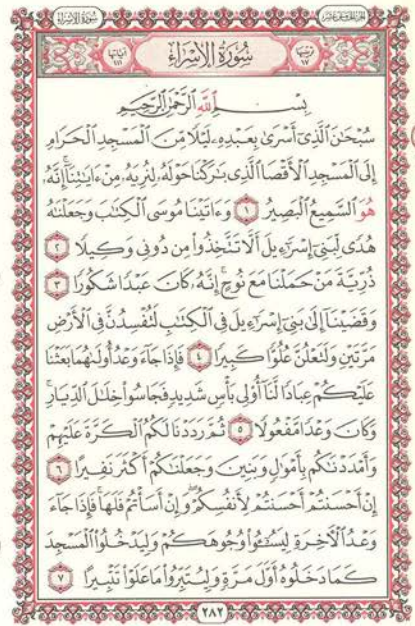 سُورَةُ الإِسْرَاءِ
الجزء الخامس عشر
آياتها ١١١
سُورَةُ الإِسْرَاءِ
ترتيبها ١٧
بِسْمِ ٱللَّهِ ٱلرَّحْمَٰنِ ٱلرَّحِيمِ
سُبْحَٰنَ ٱلَّذِىٓ أَسْرَىٰ بِعَبْدِهِۦ لَيْلًا مِّنَ ٱلْمَسْجِدِ ٱلْحَرَامِ
إِلَى ٱلْمَسْجِدِ ٱلْأَقْصَا ٱلَّذِى بَٰرَكْنَا حَوْلَهُۥ لِنُرِيَهُۥ مِنْ ءَايَٰتِنَآ ۚ إِنَّهُۥ
هُوَ ٱلسَّمِيعُ ٱلْبَصِيرُ ١ وَءَاتَيْنَا مُوسَى ٱلْكِتَٰبَ وَجَعَلْنَٰهُ
هُدًى لِّبَنِىٓ إِسْرَٰٓءِيلَ أَلَّا تَتَّخِذُوا۟ مِن دُونِى وَكِيلًا ٢
ذُرِّيَّةَ مَنْ حَمَلْنَا مَعَ نُوحٍ ۚ إِنَّهُۥ كَانَ عَبْدًا شَكُورًا ٣
وَقَضَيْنَآ إِلَىٰ بَنِىٓ إِسْرَٰٓءِيلَ فِى ٱلْكِتَٰبِ لَتُفْسِدُنَّ فِى ٱلْأَرْضِ
مَرَّتَيْنِ وَلَتَعْلُنَّ عُلُوًّا كَبِيرًا ٤ فَإِذَا جَآءَ وَعْدُ أُولَىٰهُمَا بَعَثْنَا
عَلَيْكُمْ عِبَادًا لَّنَآ أُو۟لِى بَأْسٍ شَدِيدٍ فَجَاسُوا۟ خِلَٰلَ ٱلدِّيَارِ ۚ
وَكَانَ وَعْدًا مَّفْعُولًا ٥ ثُمَّ رَدَدْنَا لَكُمُ ٱلْكَرَّةَ عَلَيْهِمْ
وَأَمْدَدْنَٰكُم بِأَمْوَٰلٍ وَبَنِينَ وَجَعَلْنَٰكُمْ أَكْثَرَ نَفِيرًا ٦
إِنْ أَحْسَنتُمْ أَحْسَنتُمْ لِأَنفُسِكُمْ ۖ وَإِنْ أَسَأْتُمْ فَلَهَا ۚ فَإِذَا جَآءَ
وَعْدُ ٱلْءَاخِرَةِ لِيَسُۥٓـُٔوا۟ وُجُوهَكُمْ وَلِيَدْخُلُوا۟ ٱلْمَسْجِدَ
كَمَا دَخَلُوهُ أَوَّلَ مَرَّةٍ وَلِيُتَبِّرُوا۟ مَا عَلَوْا۟ تَتْبِيرًا ٧
٢٨٢